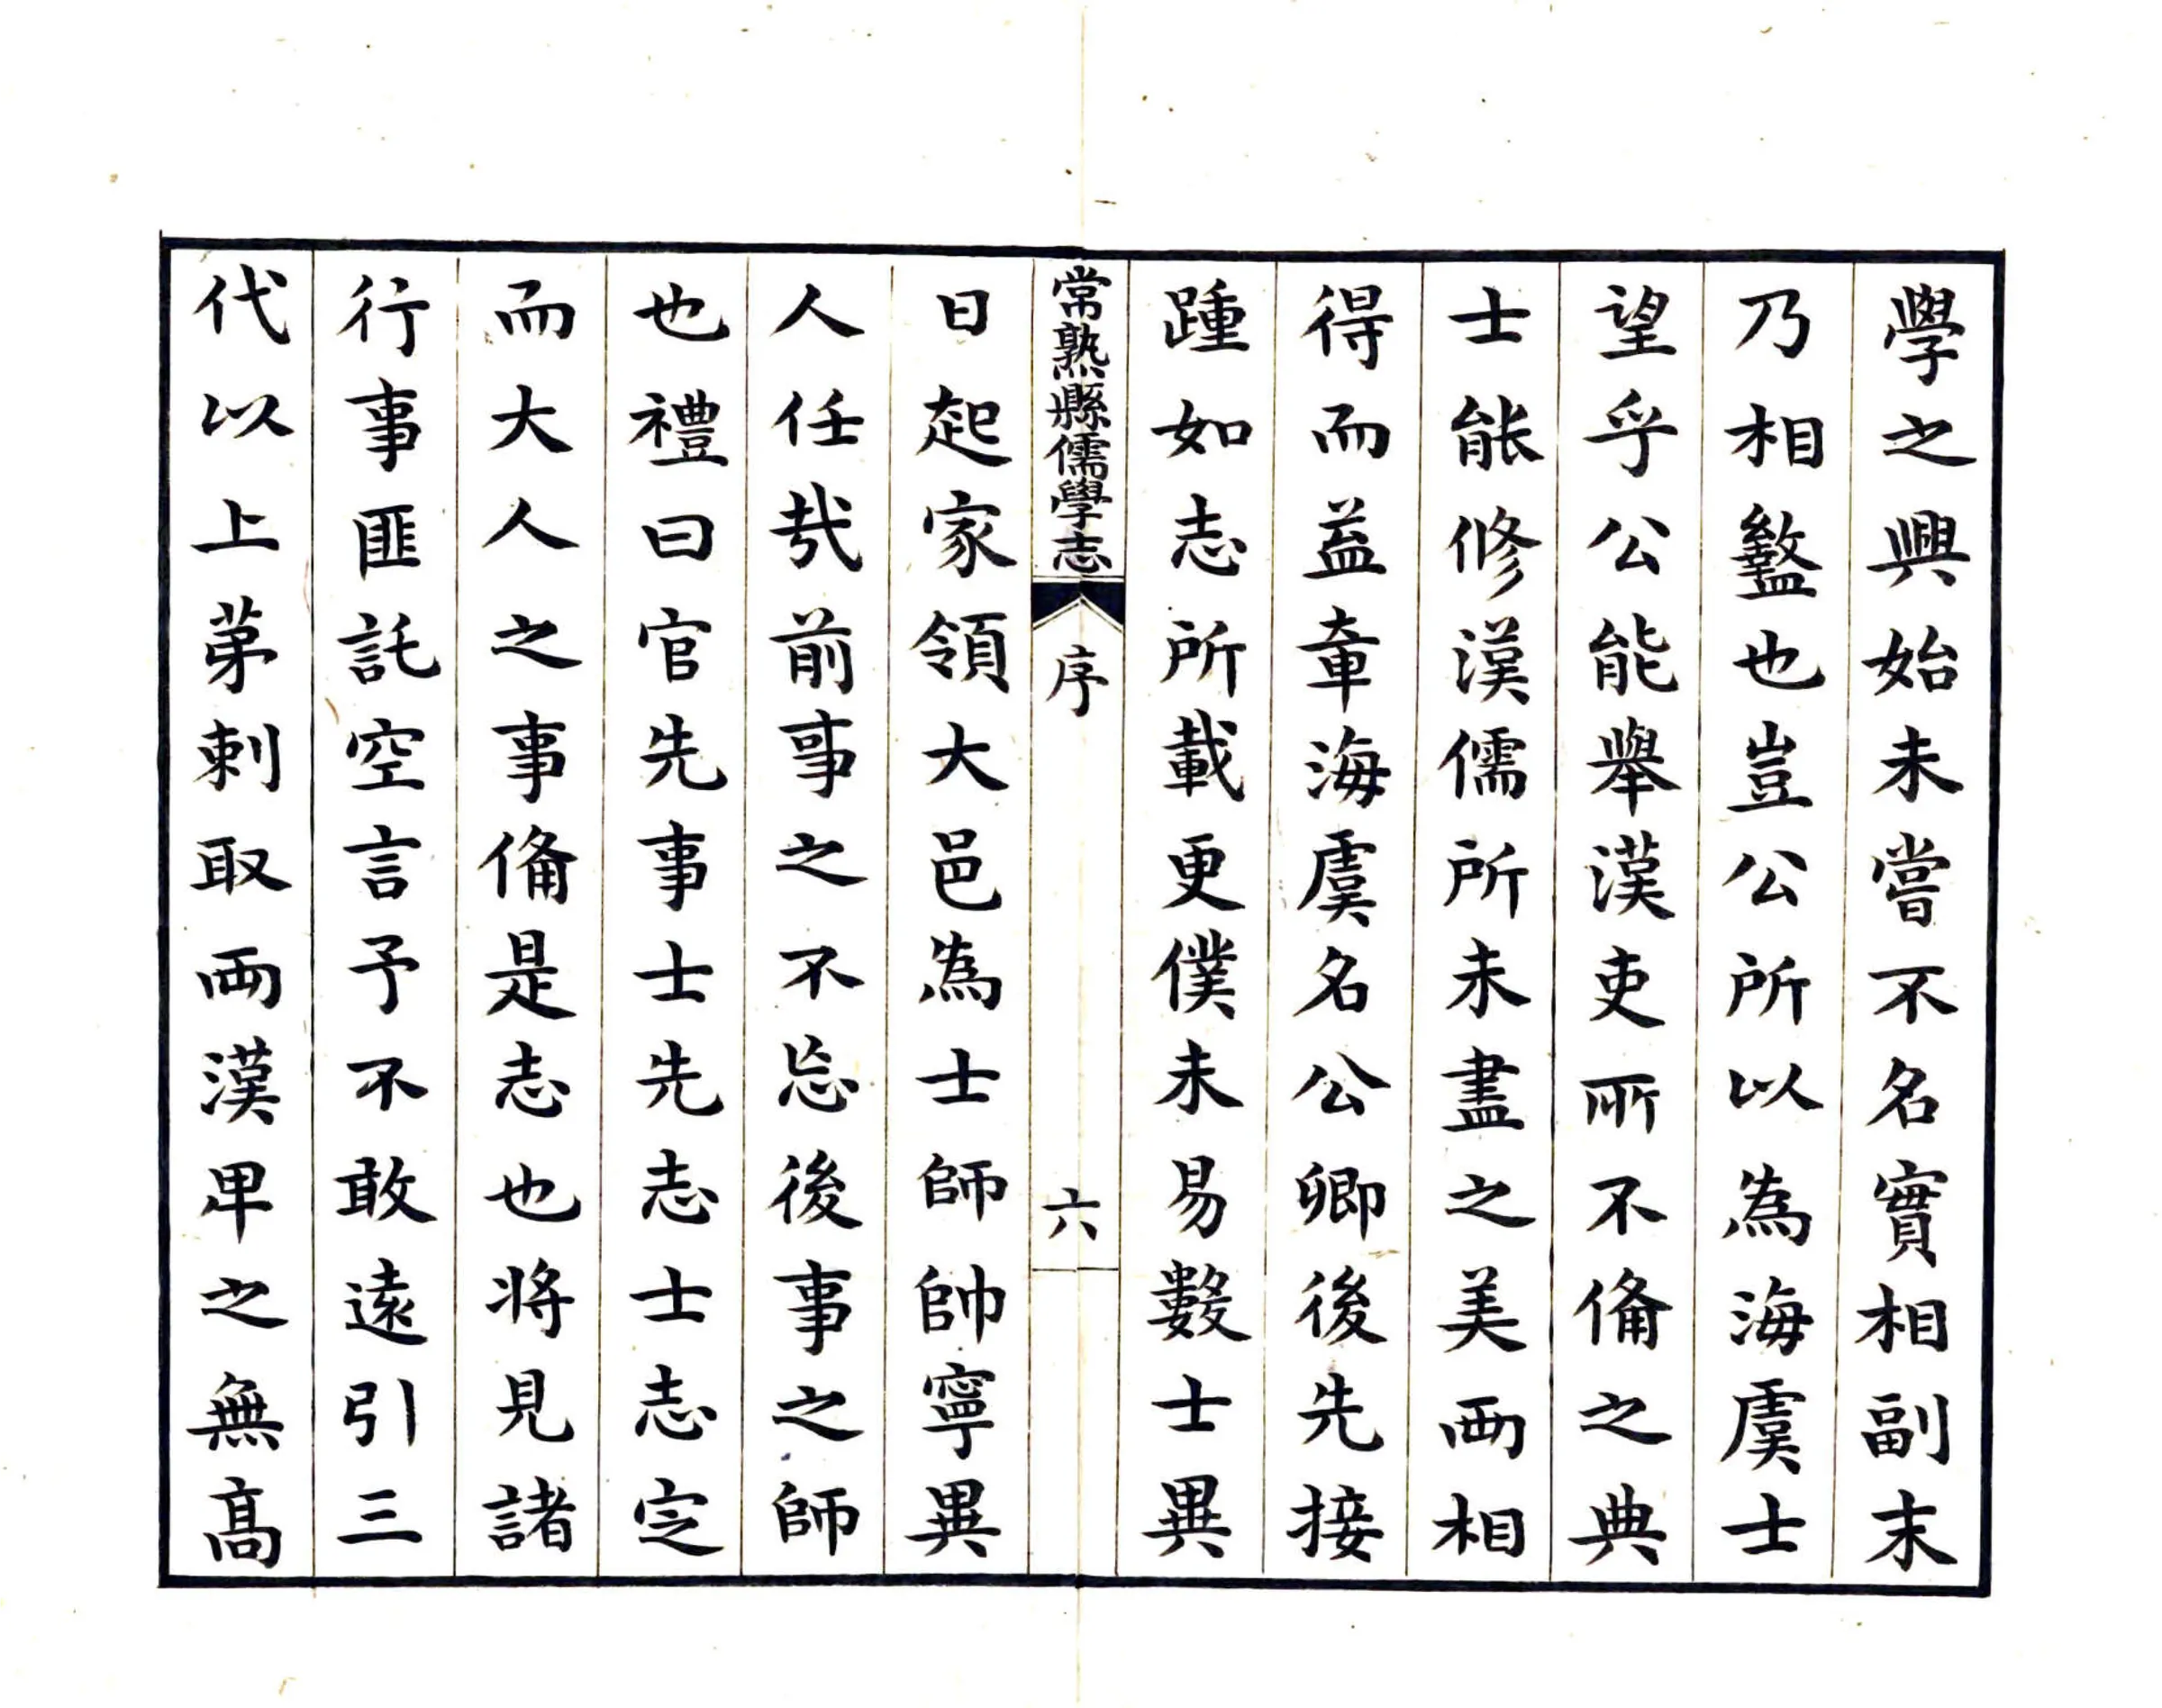 學之興始未嘗不名實相副末
乃相盭也豈公所以為海虞士
望乎公能舉漢吏所不備之典
士能修漢儒所未盡之美兩相
得而益章海虞名公卿後先接
踵如志所載更僕未易數士異
常熟縣儒學志
序
六
日起家領大邑為士師帥寧異
人任哉前事之不忘後事之師
也禮曰官先事士先志士志定
而大人之事備是志也將見諸
行事匪託空言予不敢遠引三
代以上苐刺取兩漢卑之無高